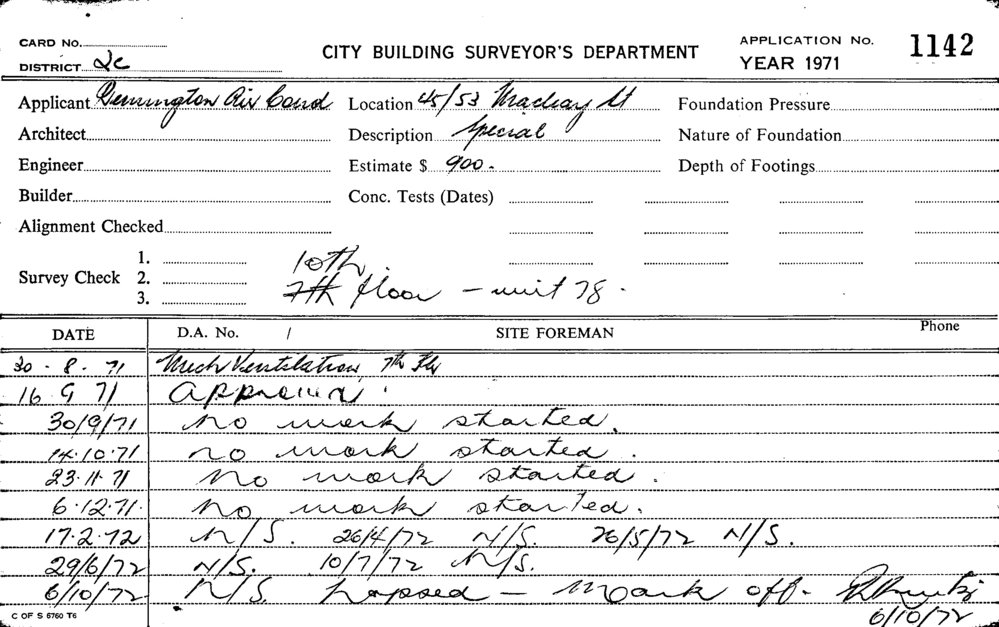 CARD No.
DISTRICT 2c
CITY BUILDING SURVEYOR'S DEPARTMENT
APPLICATION No. 1142
YEAR 1971
Applicant Remington Air Cond Location 45/53 Macleay St Foundation Pressure
Architect Description Special Nature of Foundation
Engineer Estimate $ 900. Depth of Footings
Builder Conc. Tests (Dates)
Alignment Checked
Survey Check 1.
2.
3.
10th.
7th floor - unit 78.
DATE D.A. No. / SITE FOREMAN Phone
30-8-71 Mech Ventilation 7th Flr
16 9 71 Approved
30/9/71 No work started.
14.10.71 no work started.
23.11.71 No work started.
6.12.71. No work started.
17.2.72 N/S. 26/4/72 N/S. 26/5/72 N/S.
29/6/72 N/S. 10/7/72 N/S.
6/10/72 N/S. Lapsed - Mark off.
6/10/72
C OF S 6760 T6